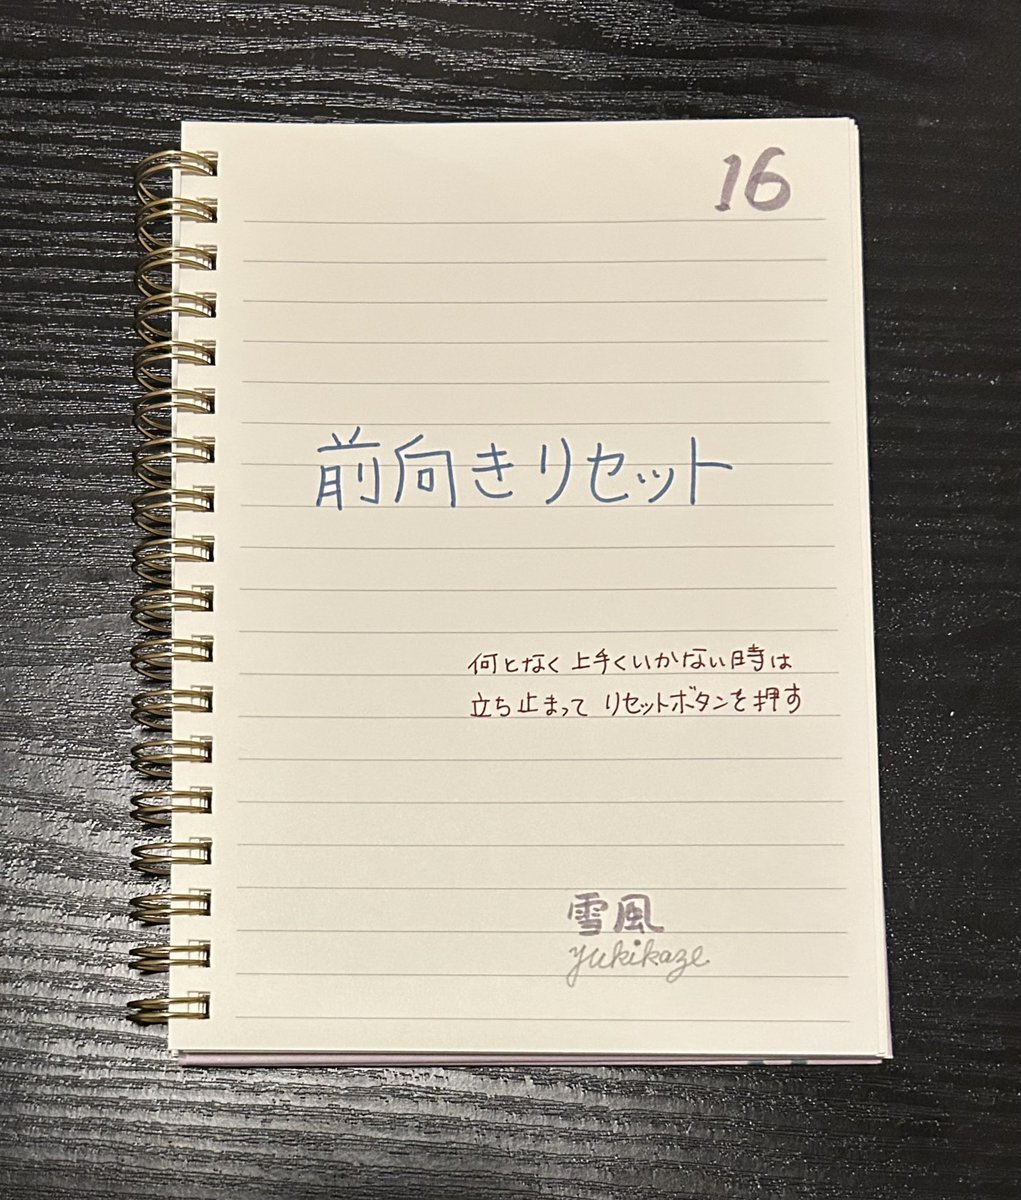 16
前向きリセット
何となく上手くいかない時は
立ち止まって リセットボタンを押す
雪風
yukikaze